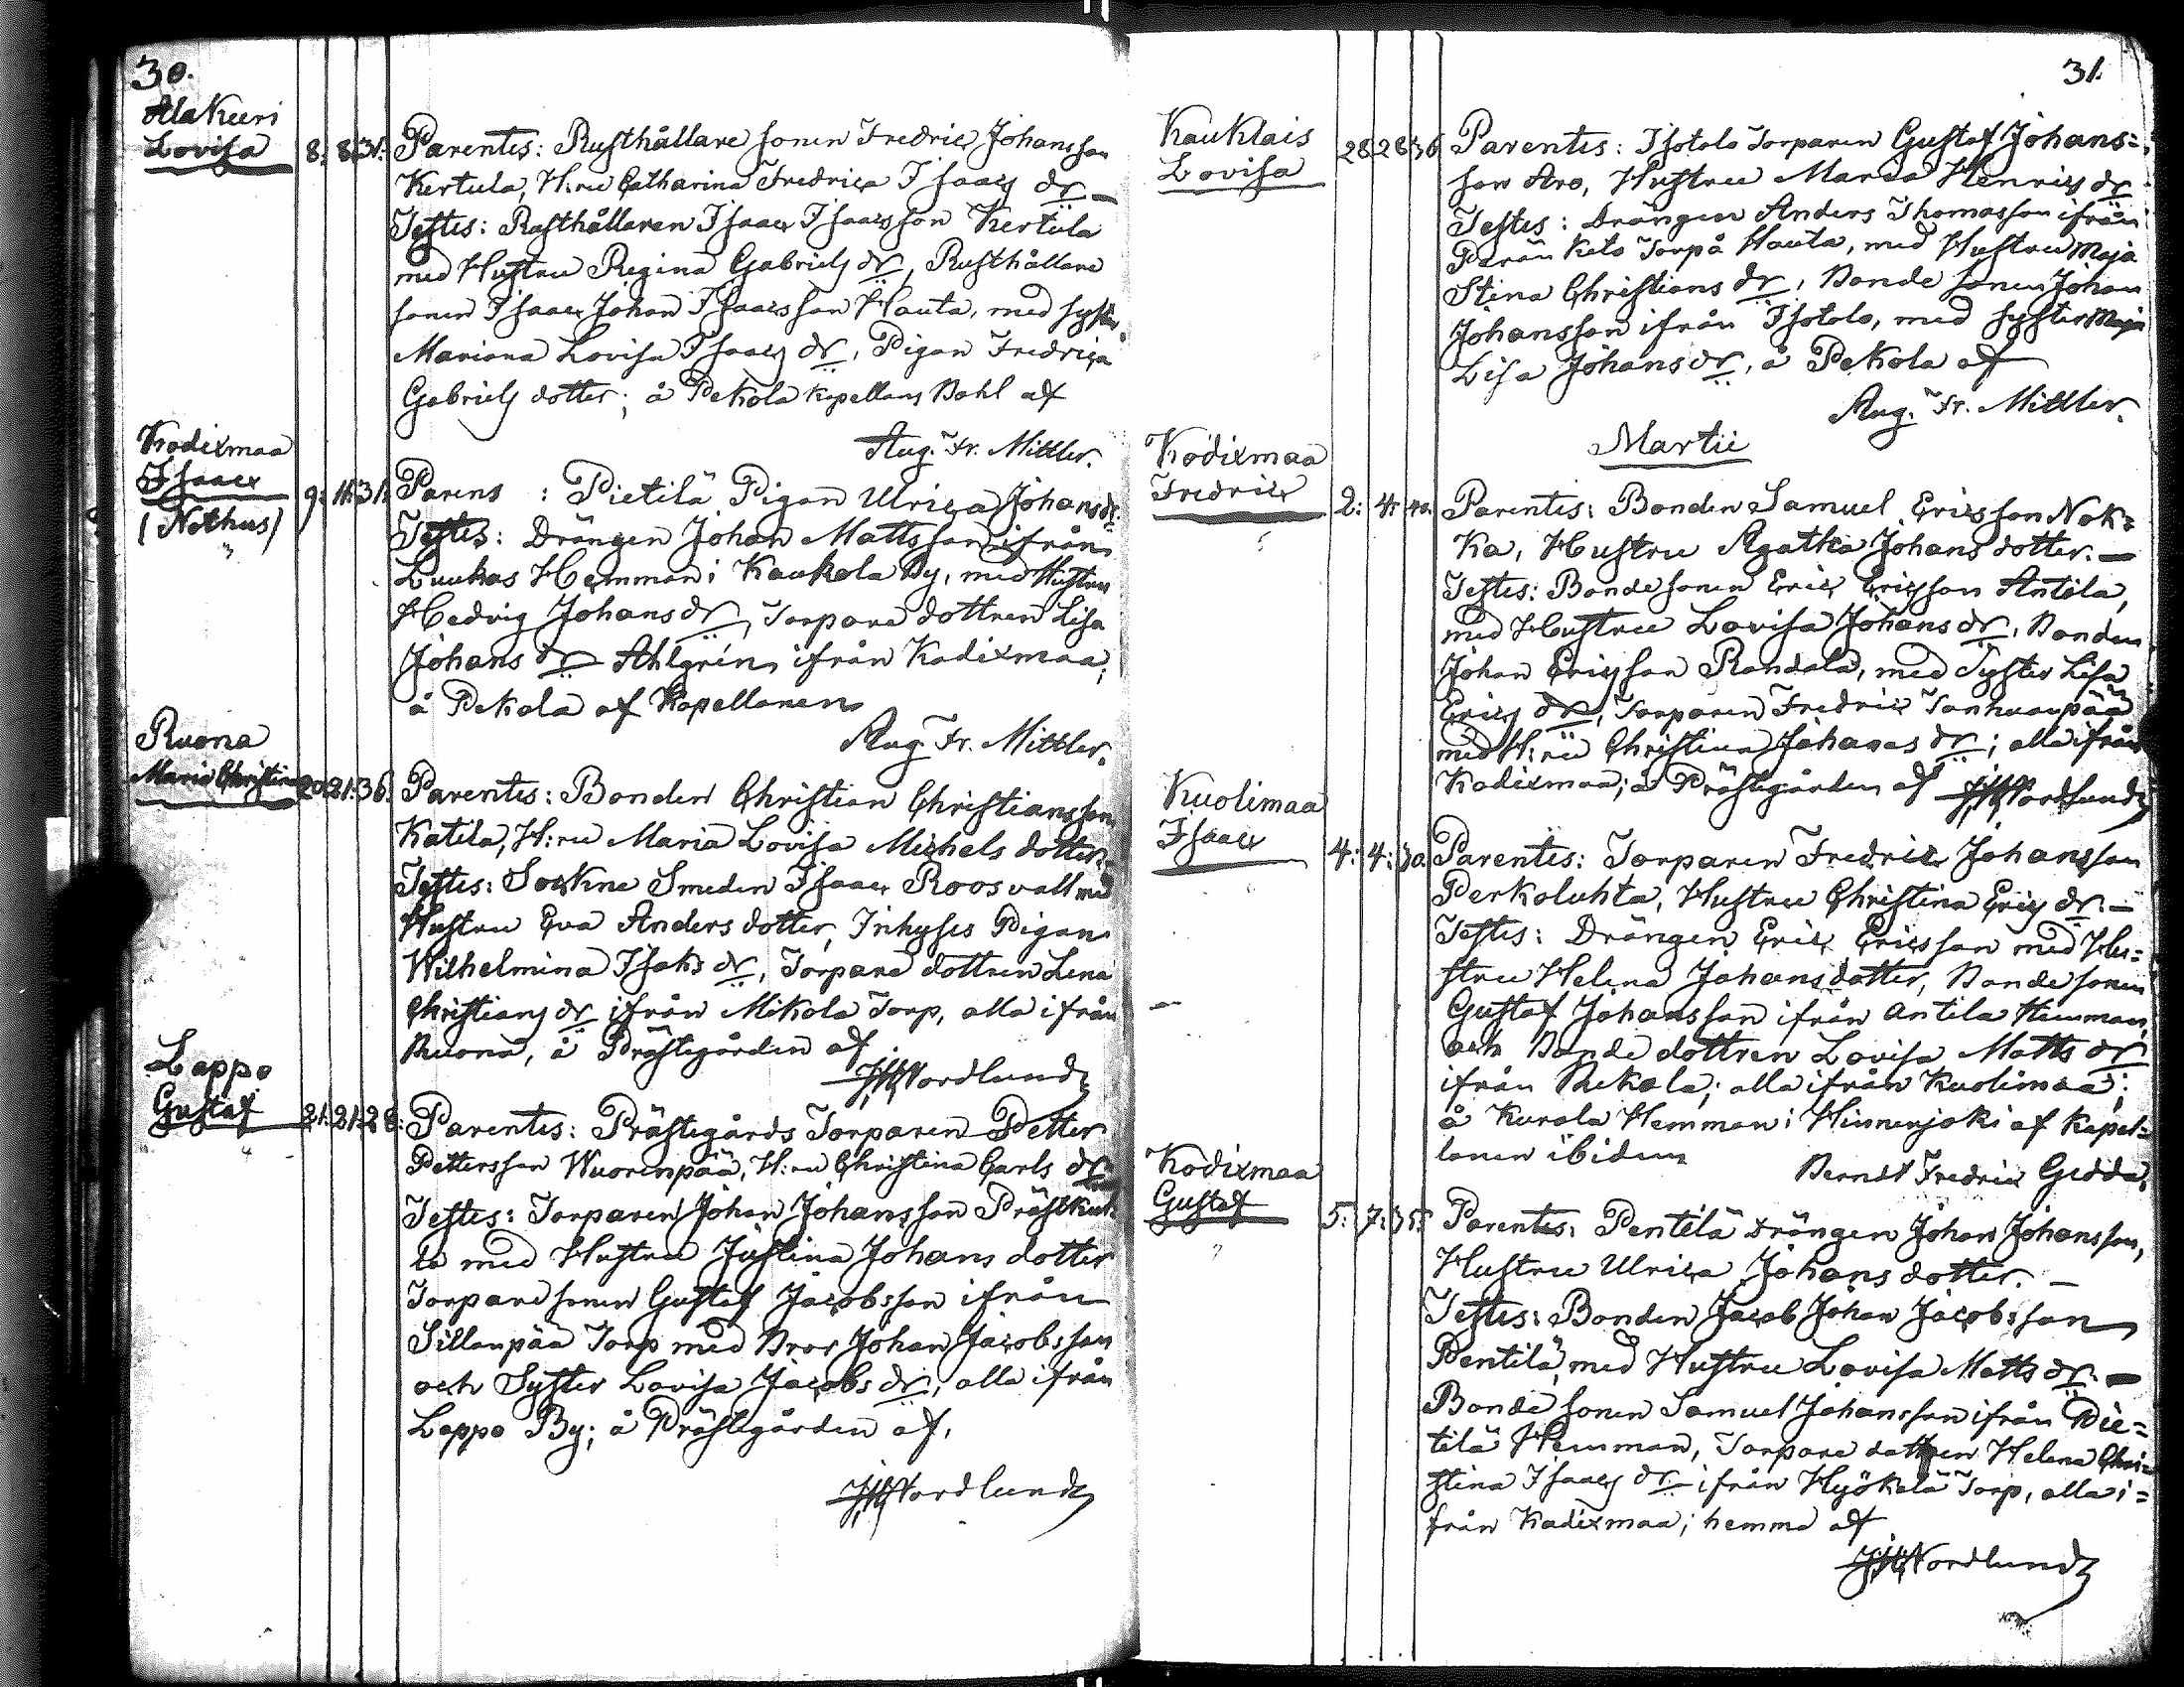 30.
Alakuuri
Lovisa 8: 8: 31: Parentes: Rusthållare sonen Fredric Johansson
Kertula, H:ru Catharina Fredrica Isaacs dr —
Testes: Rusthållaren Isaac Isaacsson Kertula
med Hustru Regina Gabriels dr, Rusthållare
sonen Isaac Johan Isaacsson Hauta, med syster
Mariana Lovisa Isaacs dr, Pigan Fredrica
Gabriels dotter; å Pekola Kapellans Bohl af
Aug. Fr. Mittler.
Kodixmaa
Isaac
(Nothus) 9: 11: 31: Parens: Pietilä Pigan Ulrica Johans dr.
Testes: Drängen Johan Mattsson ifrån
Luukas Hemman i Kaukola By, med Hustru
Hedvig Johans dr, Torpare dottren Lisa
Johans dr Ahlgrén, ifrån Kodixmaa;
å Pekola af Kapellanen
Aug. Fr. Mittler.
Ruona
Maria Christina 20: 21: 36: Parentes: Bonden Christian Christiansson
Katila, H:ru Maria Lovisa Michels dotter.
Testes: Sockne Smeden Isaac Roosvall med
Hustru Eva Anders dotter, Inhyses Pigan
Wilhelmina Isaks dr, Torpare dottren Lena
Christians dr ifrån Mikola Torp, alla ifrån
Ruona, å Prästegården af
Nordlund
Lappo
Gustaf 21: 21: 28: Parentes: Prästegårds Torparen Petter
Pettersson Wuorenpää, H:ru Christina Carls dr
Testes: Torparen Johan Johansson Prästkuk
la med Hustru Justina Johans dotter
Torpare sonen Gustaf Jacobsson ifrån
Sillanpää Torp med Bror Johan Jacobsson
och Syster Lovisa Jacobs dr; alla ifrån
Lappo By; å Prästegården af.
Nordlund
31.
Kauklais
Lovisa 28 28 36 Parentes: Isotalo Torparen Gustaf Johans=
son Aro, Hustru Maria Henrics dr.
Testes: Drängen Anders Thomasson ifrån
Perän Keto Torp å Hauta, med Hustru Maja
Stina Christians dr, Bonde sonen Johan
Johansson ifrån Isotalo, med syster Maja
Lisa Johans dr, å Pekola af
Aug. Fr. Mittler.
Martii
Kodixmaa
Fredric 2: 4: 40. Parentes: Bonden Samuel Ericsson Nok=
ka, Hustru Agatha Johans dotter. —
Testes: Bonde sonen Eric Ericsson Antila,
med Hustru Lovisa Johans dr, Bonden
Johan Ericsson Randala, med Syster Lisa
Erics dr, Torparen Fredric Tanhuanpää
med H:ru Christina Johans dr; alla ifrån
Kodixmaa; å Prästegården af Nordlund
Kuolimaa
Isaac 4: 4: 30. Parentes: Torparen Fredric Johansson
Perkoluhta, Hustru Christina Erics dr. —
Testes: Drängen Eric Ericsson med Hu=
stru Helena Johans dotter, Bonde sonen
Gustaf Johansson ifrån Antila Hemman,
och Bonde dottren Lovisa Matts dr
ifrån Rekola; alla ifrån Kuolimaa;
å Kurala Hemman i Hinnerjoki af Kapel=
lanen ibidem
Berndt Fredric Gedda.
Kodixmaa
Gustaf 5: 7: 35: Parentes: Pentilä drängen Johan Johansson,
Hustru Ulrica Johans dotter. —
Testes: Bonden Jacob Johan Jacobsson
Pentilä, med Hustru Lovisa Matts dr. —
Bonde sonen Samuel Johansson ifrån Pie=
tilä Hemman, Torpare dottren Helena Chri=
stina Isaacs dr ifrån Hyökelä Torp, alla i=
från Kodixmaa; hemma af
Nordlund